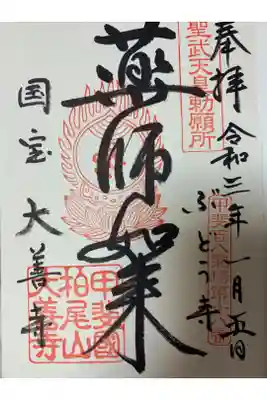 奉拝
令和三年一月五日
ぶどう寺
聖武天皇勅願所
薬師如来
国宝大善寺
甲斐國
柏尾山
大善寺